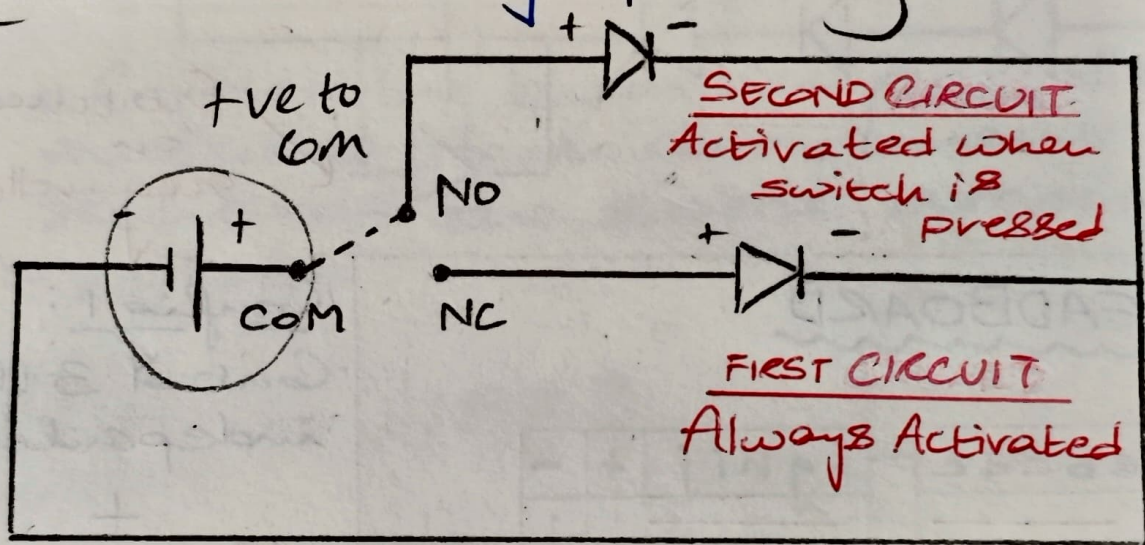 + -
+ve to
com
SECOND CIRCUIT
Activated when
switch is
pressed
NO
+
+ -
COM
NC
FIRST CIRCUIT
Always Activated